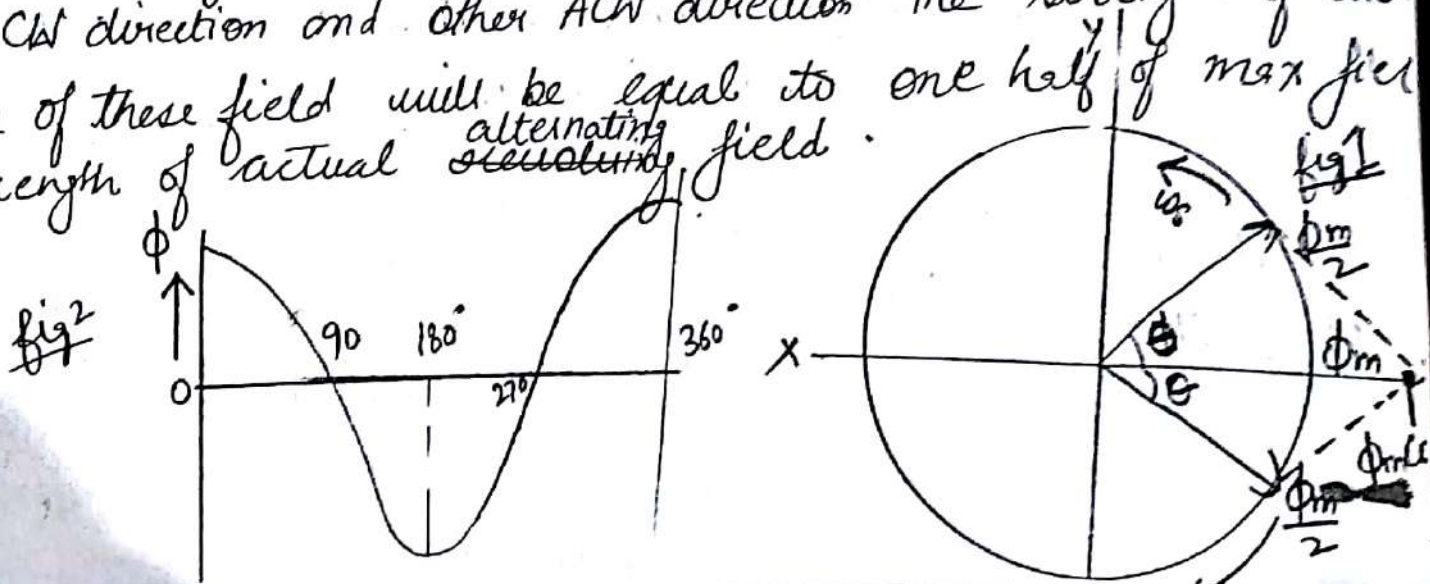 CW direction and other ACW direction the of
of these field will be equal to one half of max fiel
rength of actual alternating field.
fig 2
ϕ
0
90
180°
270
360°
fig 1
Y
X
ωs
ϕm/2
θ
θ
ϕm
ϕm/2